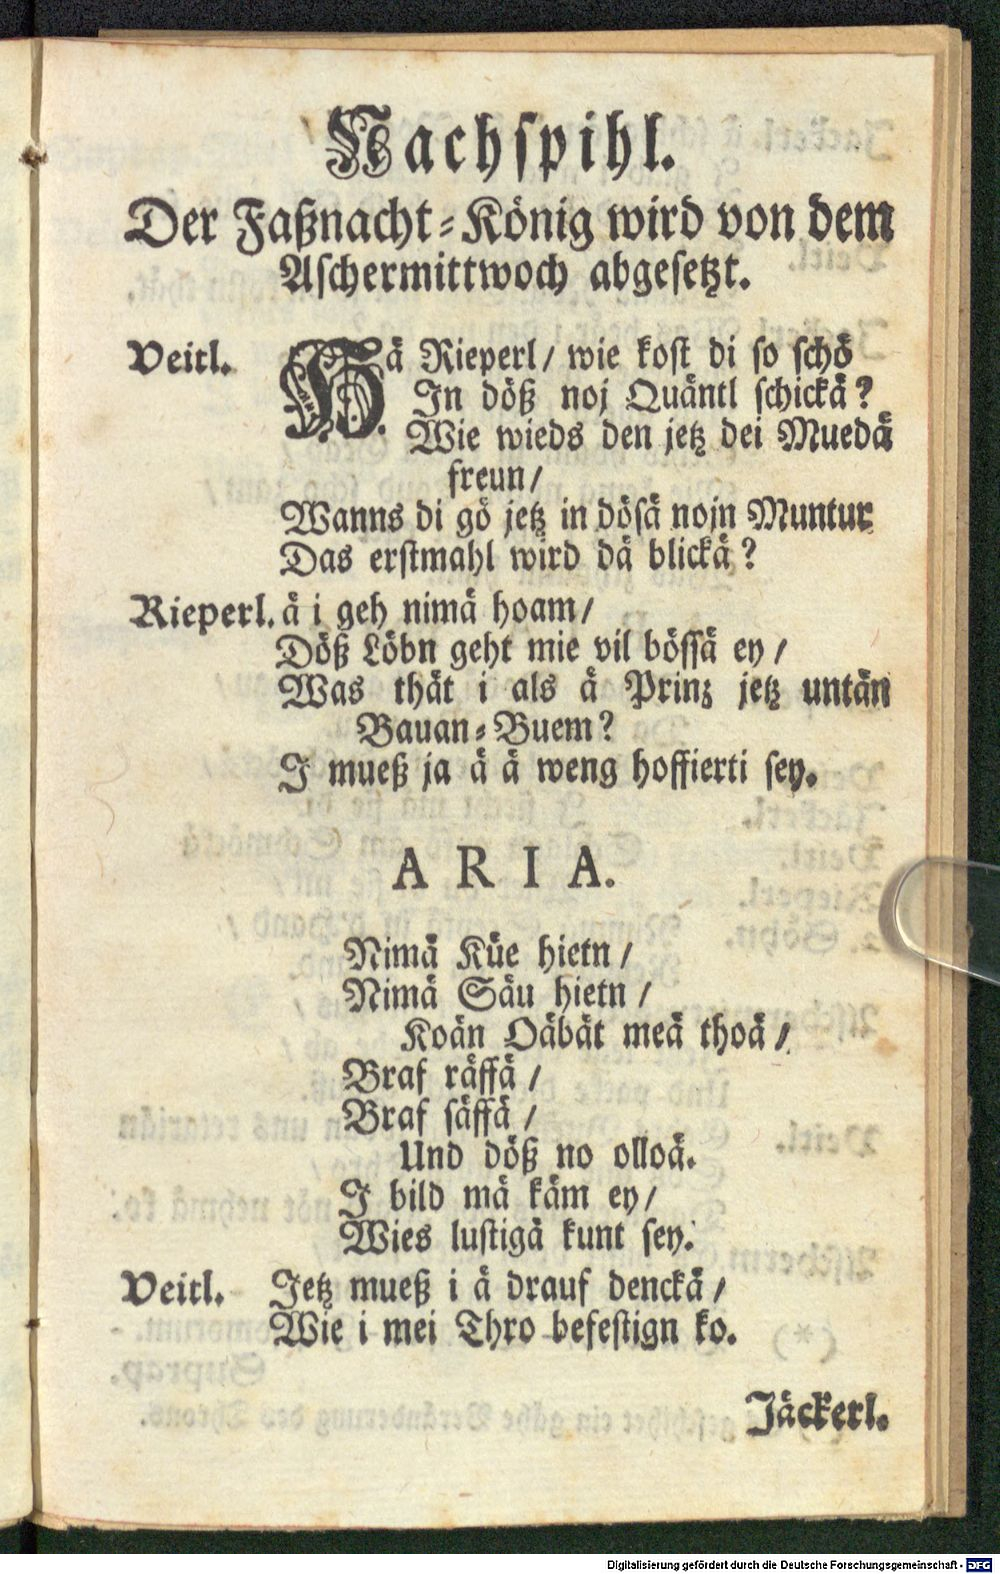 Nachspihl.
Der Faßnacht-König wird von dem
Aschermittwoch abgesetzt.
Veitl. Hä Rieperl/ wie kost di so schö
In döß noj Quäntl schickä?
Wie wieds den jetz dei Muedä
freun/
Wanns di gö jetz in dösä nojn Muntur
Das erstmahl wird dä blickä?
Rieperl. ä i geh nimä hoam/
Döß Löbn geht mie vil bössä ey/
Was thät i als ä Prinz jetz untän
Bauan-Buem?
I mueß ja ä ä weng hoffierti sey.
ARIA.
Nimä Küe hietn/
Nimä Säu hietn/
Koän Oäbät meä thoä/
Braf räffä/
Braf säffä/
Und döß no olloä.
I bild mä käm ey/
Wies lustigä kunt sey.
Veitl. Jetz mueß i ä drauf denckä/
Wie i mei Thro befestign ko.
Jäckerl.
Digitalisierung gefördert durch die Deutsche Forschungsgemeinschaft - DFG